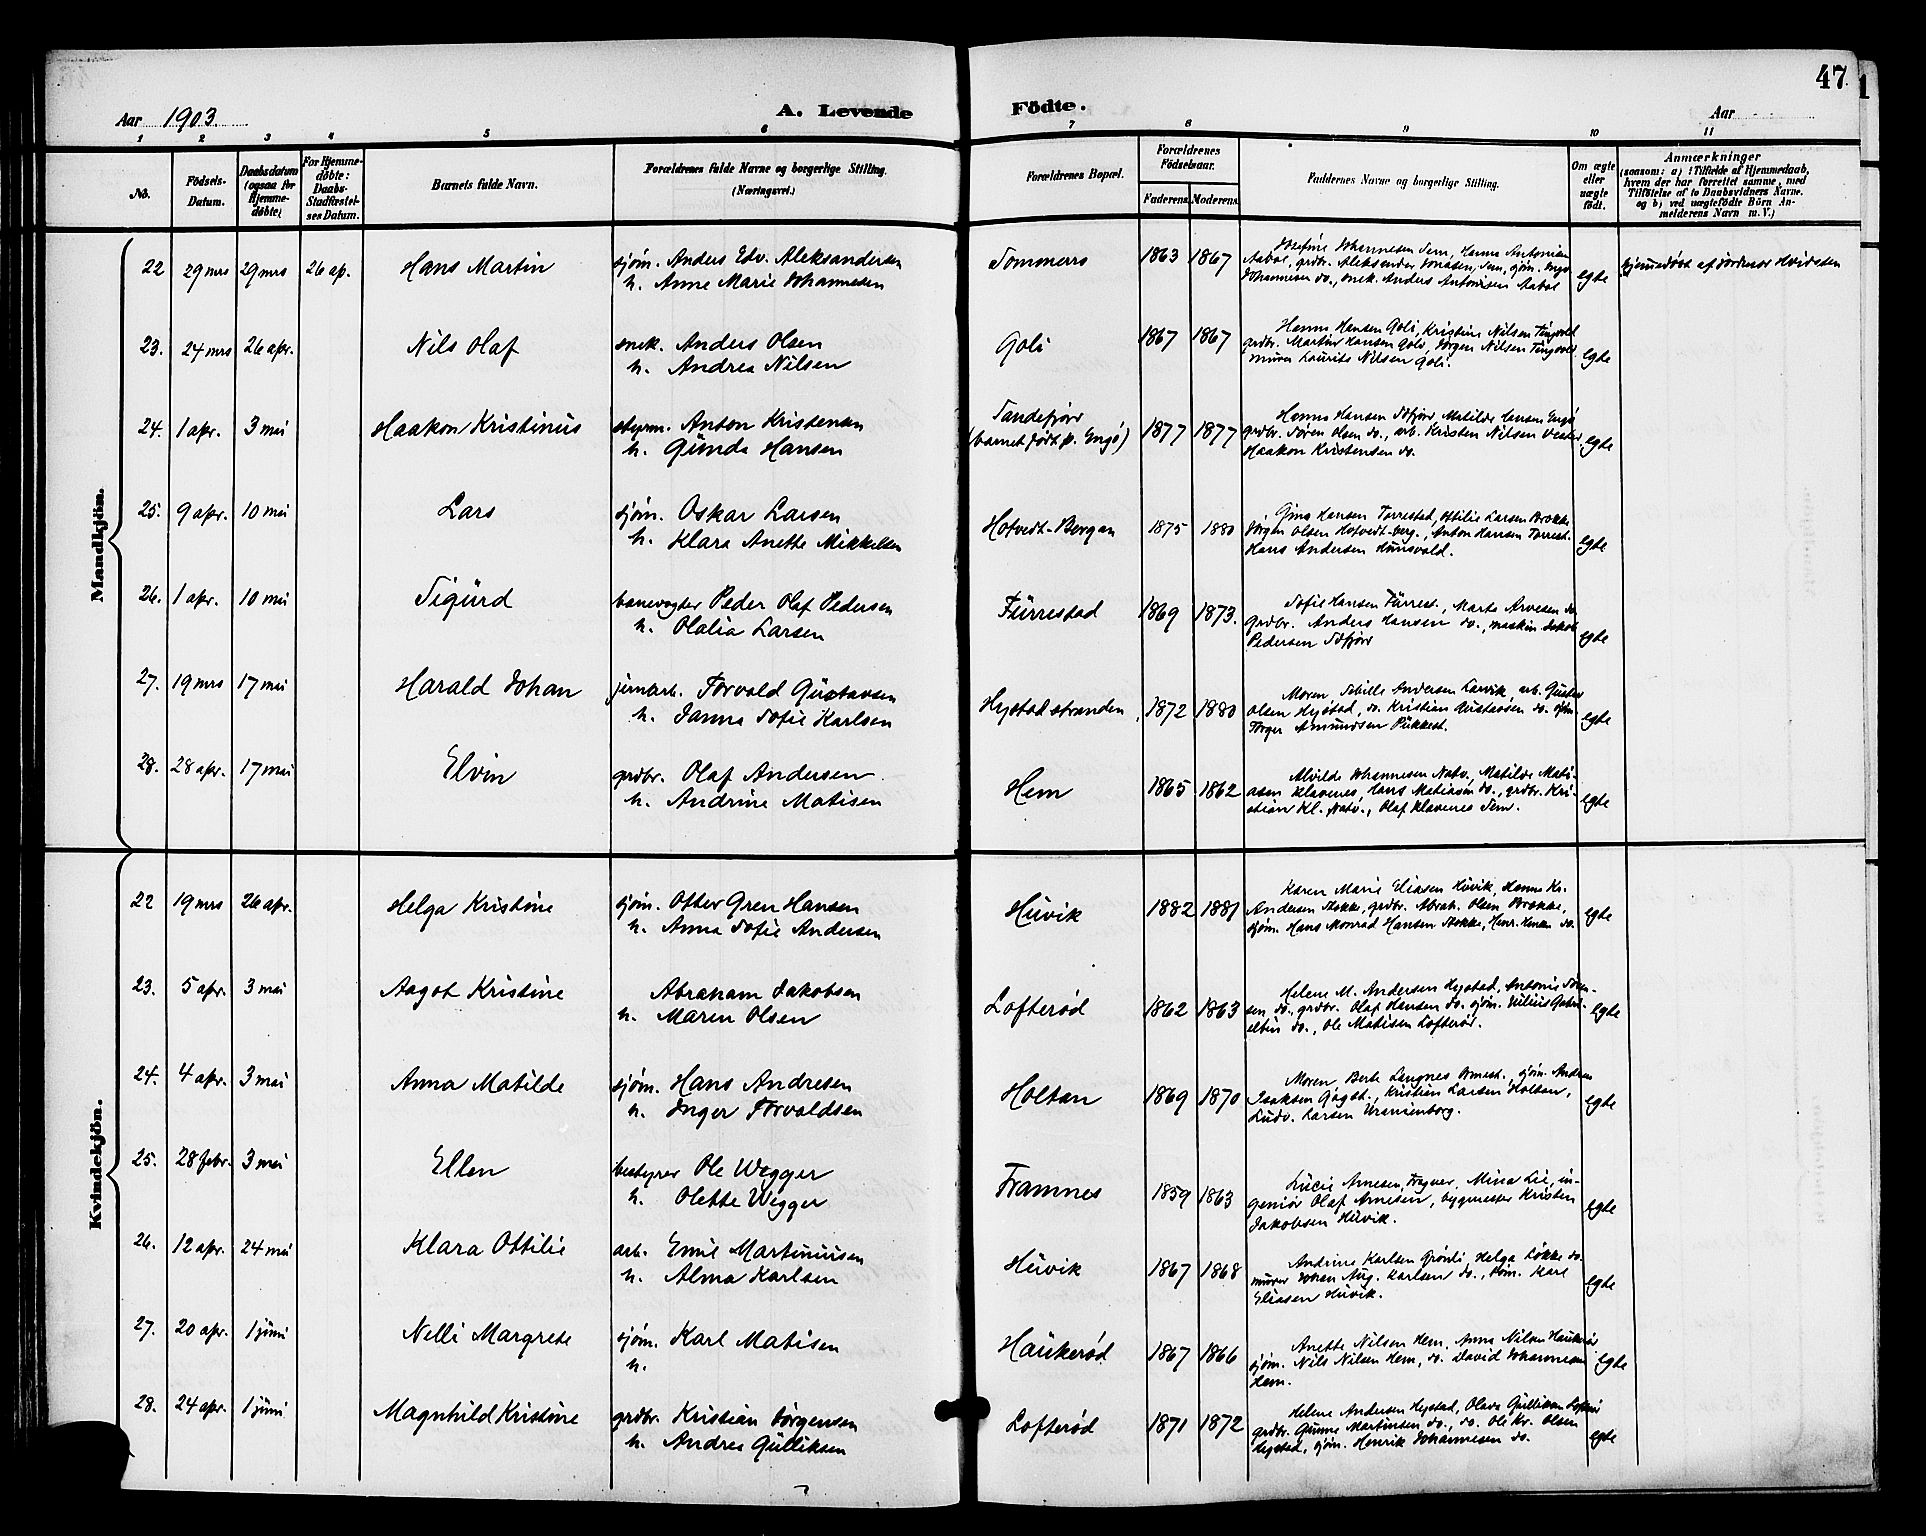 47
Aar 1903. A. Levende Födte. Aar
1 2 3 4 5 6 7 8 9 10 11
No.
Födsels-Datum.
Daabsdatum (ogsaa for Hjemme-döbte)
For Hjemme-döbte: Daabs-Stadfæstel-ses Datum.
Barnets fulde Navn.
Forældrenes fulde Navne og borgerlige Stilling.
(Næringsvei.)
Forældrenes Bopæl.
Forældrenes Födselsaar.
Faderens. Moderens.
Faddernes Navne og borgerlige Stilling.
Om ægte eller uægte födt.
Anmærkninger
(saasom: a) i Tilfælde af Hjemmedaab,
hvem der har forrettet samme, med
Tilföielse af to Daabsvidners Navne.
og b) ved uægtefödte Börn An-
melderens Navn m. V.)
Mandkjön.
22 29 mrs 29 mrs 26 ap. Hans Martin sjøm. Anders Edv. Aleksandersen
h. Anne Marie Johannesen
Sommerro 1863 1867 Josefine Johannesen Sem, Hanna Antonian
Aabol, grdbr. Aleksander Jonasen, Sem, sjøm. Ingv.
Johannesen do., snek. Anders Antonisen Aabol egte
hjemmedøbt af jordmor Hvidsten
23. 24 mrs 26 apr. Nils Olaf snek. Anders Olsen
h. Andrea Nilsen
Goli 1867 1867 Hanna Hansen Goli, Kristine Nilsen Tingvold
grdbr. Martin Hansen Goli, Jørgen Nilsen Tingvold
murer Laurits Nilsen Goli. egte
24. 1 apr. 3 mai Haakon Kristinus styrm. Anton Kristensen
h. Gunda Hansen
Sandefjor
(barnet født p. Engø) 1877 1877 Hanna Hansen Sdfjør, Matilde Hansen Engø
grdbr. Søren Olsen do., arb. Kristen Nilsen Vester.
Haakon Kristensen do. egte
25. 9 apr. 10 mai Lars sjøm. Oskar Larsen
h. Klara Anette Mikkelsen
Hotvedt-Bergan 1875 1880 Gina Hansen Torrestad, Ottilie Larsen Brokke
Jørgen Olsen Hotvedt-berg., Anton Hansen Torrest.
Hans Andersen Hunsvald. egte
26. 1 apr. 10 mai Sigurd banevogter Peder Olaf Pedersen
h. Olalia Larsen
Furrestad 1869 1873. Sofie Hansen Furrest., Marta Arvesen do
grdbr. Anders Hansen do., maskin. Jakob
Pedersen Sdfjør egte
27. 19 mrs 17 mai Harald Johan jernarb. Torvald Gustavsen
h. Janna Sofie Karlsen
Hystadstranden 1872 1880 Moren, Sibille Andersen Larvik, arb. Gustav
Olsen Hystad, do. Kristian Gustavsen do. sjøm.
Torger Amundsen Pukkest. egte
28. 28 apr. 17 mai Elvin grdbr. Olaf Andersen
h. Andrine Matisen
Hem 1865 1862 Alvilde Johannesen Natv., Matilde Mati-
asen Klavenes, Hans Matiasen do., grdbr. Kri-
stian Kl. Natv., Olaf Klavenes Sem. egte
Kvindekjön.
22 19 mrs 26 apr. Helga Kristine sjøm. Otter Gren Hansen
h. Anna Sofie Andersen
Huvik 1882 1881 Karen Marie Eliasen Huvik, Hanna Kr.
Andersen Stokke, grdbr. Abrah. Olsen Brokke,
sjøm. Hans Monrad Hansen Stokke, Henr. Hansen do. egte
23. 5 apr. 3 mai Aagot Kristine Abraham Jakobsen
h. Maren Olsen
Lofterød 1862 1863 Helene M. Andersen Hystad, Antonie Sören-
sen do., grdbr. Olaf Hansen do. sjøm. Julius Gabri-
elsen do., Ole Matisen Lofterød. egte
24. 4 apr. 3 mai Anna Matilde sjøm. Hans Andresen
h. Inger Torvaldsen
Holtan 1869 1870 Moren, Berte Langnes Ormest. sjøm. Andreas
Isaksen Gogst., Kristian Larsen Holtan,
Ludv. Larsen Uranienborg. egte
25. 28 febr. 3 mai Ellen bestyrer Ole Wegger
h. Olette Wegger
Framnes 1859 1863 Lucie Arnesen, Fragner, Mina Lie, in-
geniør Olaf Arnesen, bygmester Kristen
Jakobsen Huvik. egte
26. 12 apr. 24 mai Klara Ottilie arb. Emil Martiniusen
h. Alma Karlsen
Huvik 1867 1868 Andrine Karlsen Grönli, Helga Løkke do.
murer Johan Aug. Karlsen do., tøm. Karl
Eliasen Huvik. egte
27. 20 apr. 1 juni Nelli Margrete sjøm. Karl Matisen
h.
Haukerød 1867 1866 Anette Nilsen Hem, Anna Nilsen Haukerød
sjøm. Nils Nilsen Hem, do. David Johannesen
Hem. egte
28. 24 apr. 1 juni Magnhild Kristine grdbr. Kristian Jørgensen
h. Andrea Gulliksen
Lofterød 1871 1872 Helene Andersen Hystad, Olava Gulliksen Lofterød
grdbr. Gunne Martinsen do., do. Ole Kr. Olsen
Hystad, sjøm. Henrik Johannesen do. egte